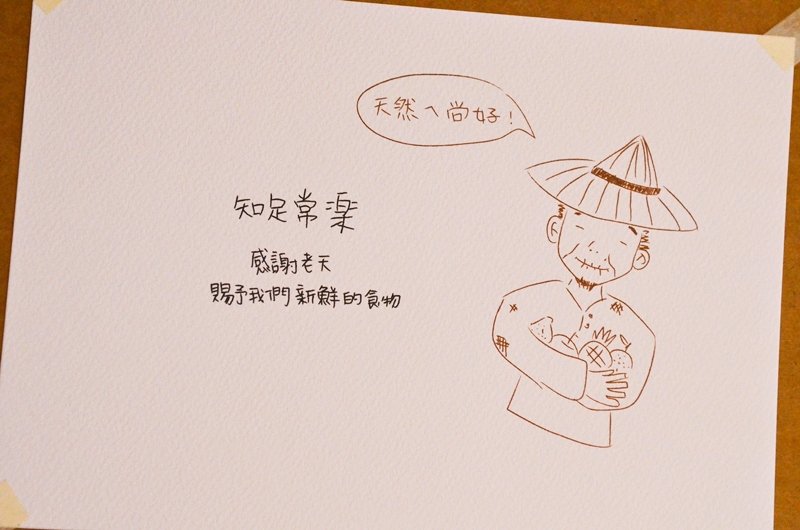 天然ㄟ尚好！
知足常楽
感謝老天
賜予我們新鮮的食物